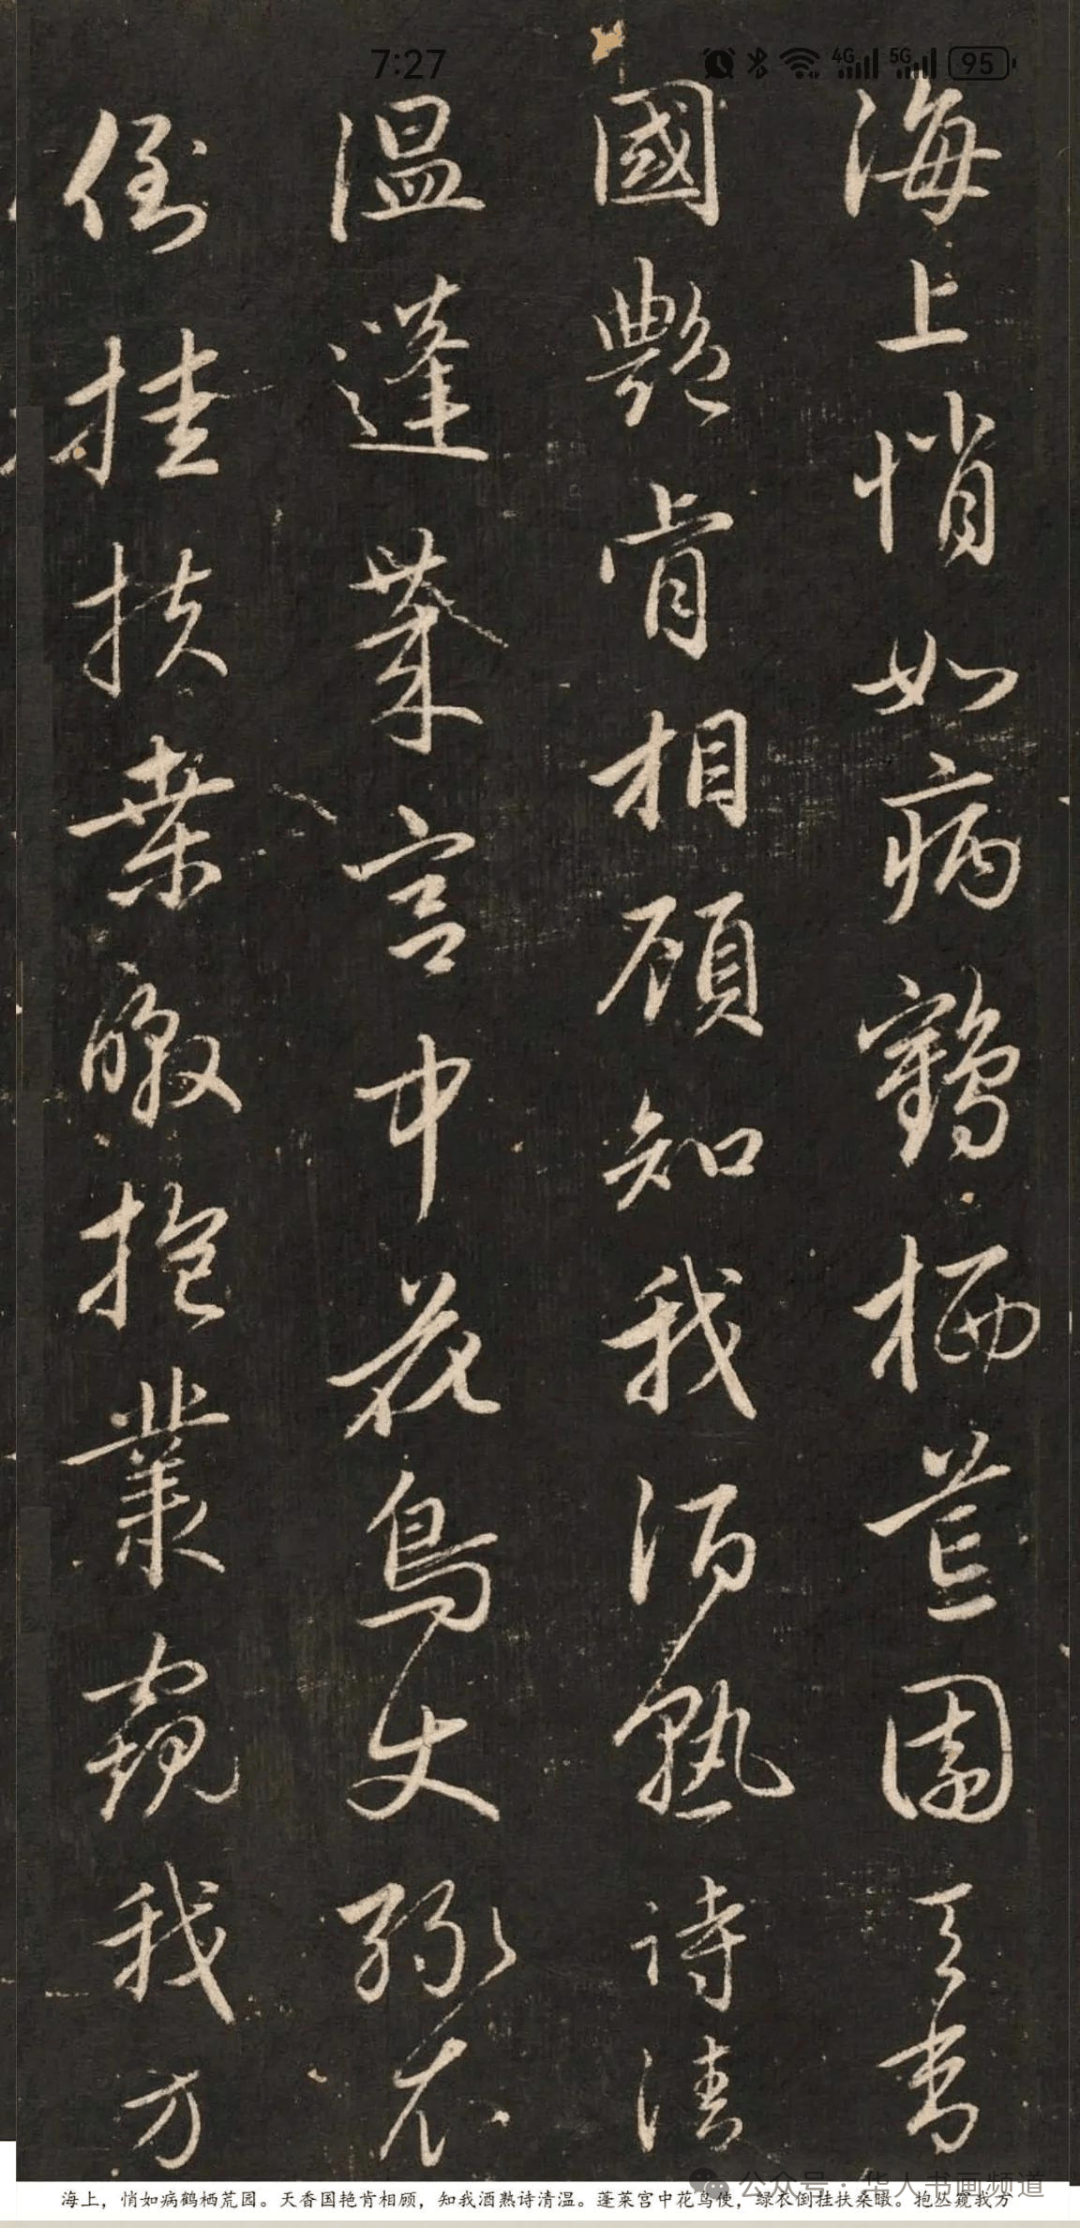 7:27
4G 5G 95
海上悄如病鶴栖荒園天香
國艷肯相顧知我酒熟詩清
温蓬萊宫中花鳥使綠衣
倒挂扶桑暾抱叢窺我方
公众号:华人书画频道
海上,悄如病鹤栖荒园。天香国艳肯相顾,知我酒熟诗清温。蓬莱宫中花鸟使,绿衣倒挂扶桑暾。抱丛窥我方